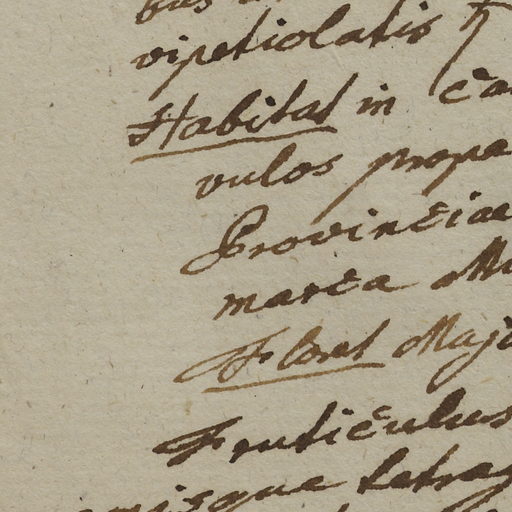 bus
vipetiolatis ђ
Habitat in Ca
vulos prope
Provinciae
marca Mu
Floret Majo
Fruticulus
misque tetrag